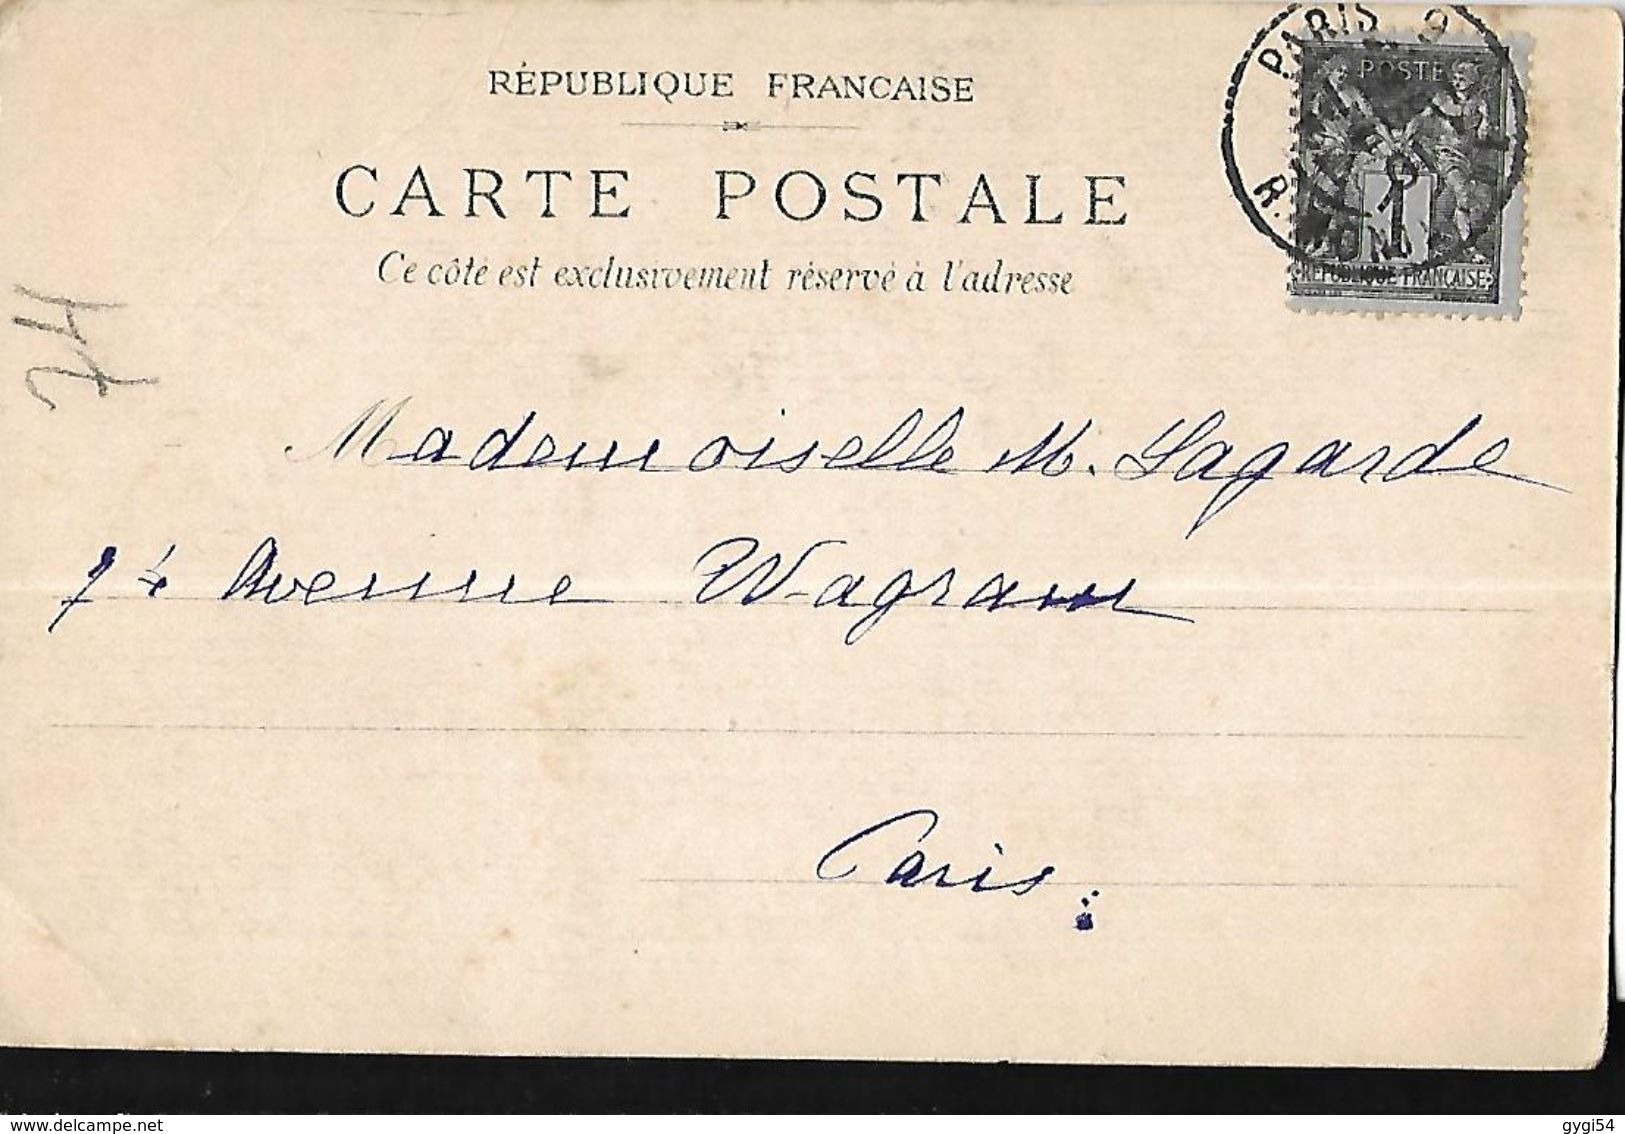 RÉPUBLIQUE FRANCAISE
CARTE POSTALE
Ce côté est exclusivement réservé à l'adresse
PARIS 9
POSTE
1
RÉPUBLIQUE FRANÇAISE
74
Mademoiselle M. Lagarde
74 Avenue Wagram
Paris.
delcampe.net
gygi54